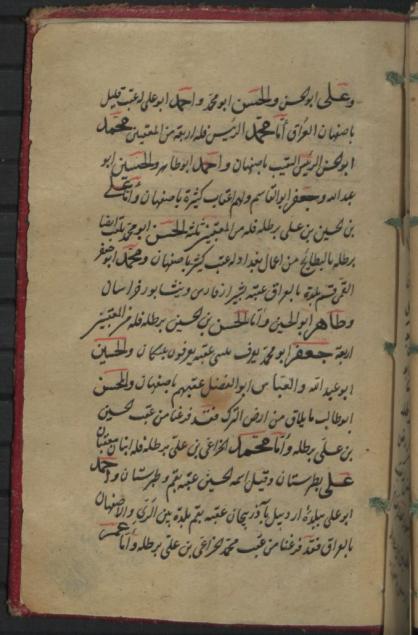 وعلى ابو الحسن والحسن ابو محمد واحمد ابو على له عقب قليل
باصفهان العراق امّا محمد الرئيس فله اربعة من المعقبين محمد
ابو الحسن الرئيس النقيب باصفهان واحمد ابو طاهر والحسين ابو
عبد الله وجعفر ابو القاسم ولهم اعقاب كثيرة باصفهان وامّا على
بن الحسين بن على برطله فله من المعقبين ثلثة الحسن ابو محمد ايضا
برطله بالبطائح من اعمال بغداد له عقب كثير باصفهان ومحمد ابو جعفر
القمى قم بلدة بالعراق عقبه بشيراز فارس ونيشابور خراسان
وطاهر ابو الحسن وامّا الحسن بن الحسين برطله فله من المعقبين
اربعة جعفر ابو محمد يعرف عقبه يعرفون والحسين
ابو عبد الله والعبّاس ابو الفضل عقبهم باصفهان والحسن
ابو طالب من ارض الترك فقد فرغنا من عقب الحسين
بن على برطله وامّا محمد الخزاعى بن على برطله فله ابنان معقبان
على بطبرستان وقيل اسمه الحسين عقبه بقم وطبرستان واحمد
ابو على ببلدة اردبيل باذربيجان عقبه بقم بلدة بين الرى والاصفهان
بالعراق فقد فرغنا من عقب محمد الخزاعى بن على برطله وامّا